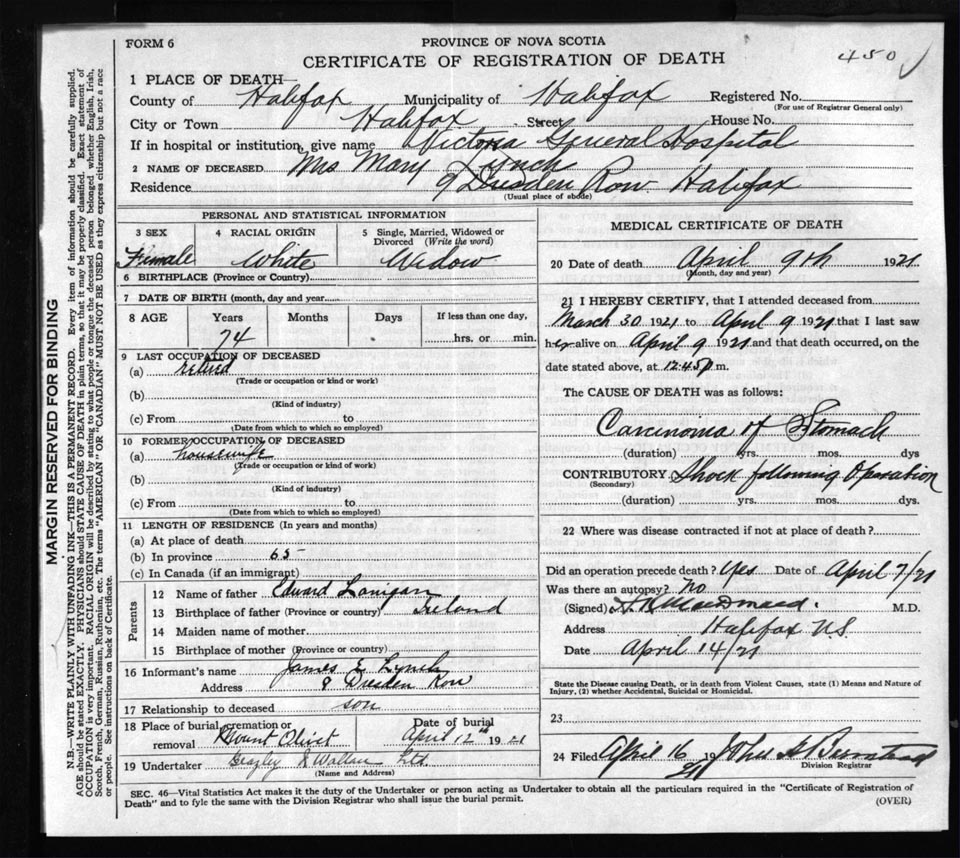 FORM 6
PROVINCE OF NOVA SCOTIA
CERTIFICATE OF REGISTRATION OF DEATH
450
1 PLACE OF DEATH
County of Halifax Municipality of Halifax Registered No.
(For use of Registrar General only)
City or Town Halifax Street House No.
If in hospital or institution, give name Victoria General Hospital
2 NAME OF DECEASED Mrs Mary Lynch
Residence 9 Dresden Row Halifax
(Usual place of abode)
PERSONAL AND STATISTICAL INFORMATION
3 SEX 4 RACIAL ORIGIN 5 Single, Married, Widowed or
Divorced (Write the word)
Female White Widow
6 BIRTHPLACE (Province or Country)
7 DATE OF BIRTH (month, day and year
8 AGE Years Months Days If less than one day,
74 hrs. or min.
9 LAST OCCUPATION OF DECEASED
(a) retired
(Trade or occupation or kind or work)
(b)
(Kind of industry)
(c) From to
(Date from which to which so employed)
10 FORMER OCCUPATION OF DECEASED
(a) housewife
(Trade or occupation or kind or work)
(b)
(Kind of industry)
(c) From to
(Date from which to which so employed)
11 LENGTH OF RESIDENCE (In years and months)
(a) At place of death
(b) In province 65
(c) In Canada (if an immigrant)
Parents
12 Name of father Edward Lanigan
13 Birthplace of father (Province or country) Ireland
14 Maiden name of mother
15 Birthplace of mother (Province or country)
16 Informant's name James E Lynch
Address 9 Dresden Row
17 Relationship to deceased son
18 Place of burial, cremation or Date of burial
removal Mount Olivet April 12th 1921
19 Undertaker Ltd
(Name and Address)
MEDICAL CERTIFICATE OF DEATH
20 Date of death April 9th 1921
(Month, day and year)
21 I HEREBY CERTIFY, that I attended deceased from
March 30 1921 to April 9 1921 that I last saw
her alive on April 9 1921 and that death occurred, on the
date stated above, at 12.45 p m.
The CAUSE OF DEATH was as follows:
Carcinoma of Stomach
(duration) yrs. mos. dys
CONTRIBUTORY Shock following Operation
(Secondary)
(duration) yrs. mos. dys.
22 Where was disease contracted if not at place of death?
Did an operation precede death? Yes Date of April 7/21
Was there an autopsy? No
(Signed) M.D.
Address Halifax N.S.
Date April 14/21
State the Disease causing Death, or in death from Violent Causes, state (1) Means and Nature of
Injury, (2) whether Accidental, Suicidal or Homicidal.
23
24 Filed April 16 1921 John
Division Registrar
SEC. 46—Vital Statistics Act makes it the duty of the Undertaker or person acting as Undertaker to obtain all the particulars required in the "Certificate of Registration of
Death" and to fyle the same with the Division Registrar who shall issue the burial permit.
(OVER)
MARGIN RESERVED FOR BINDING
N.B.—WRITE PLAINLY WITH UNFADING INK—THIS IS A PERMANENT RECORD. Every item of information should be carefully supplied.
AGE should be stated EXACTLY. PHYSICIANS should STATE CAUSE OF DEATH in plain terms, so that it may be properly classified. Exact statement of
OCCUPATION is very important. RACIAL ORIGIN will be described by stating to what people or tongue the deceased person belonged whether English, Irish,
Scotch, French, German, Russian, Ruthenian, etc. The terms "AMERICAN" OR "CANADIAN" MUST NOT BE USED as they express citizenship but not a race
or people. See instructions on back of Certificate.